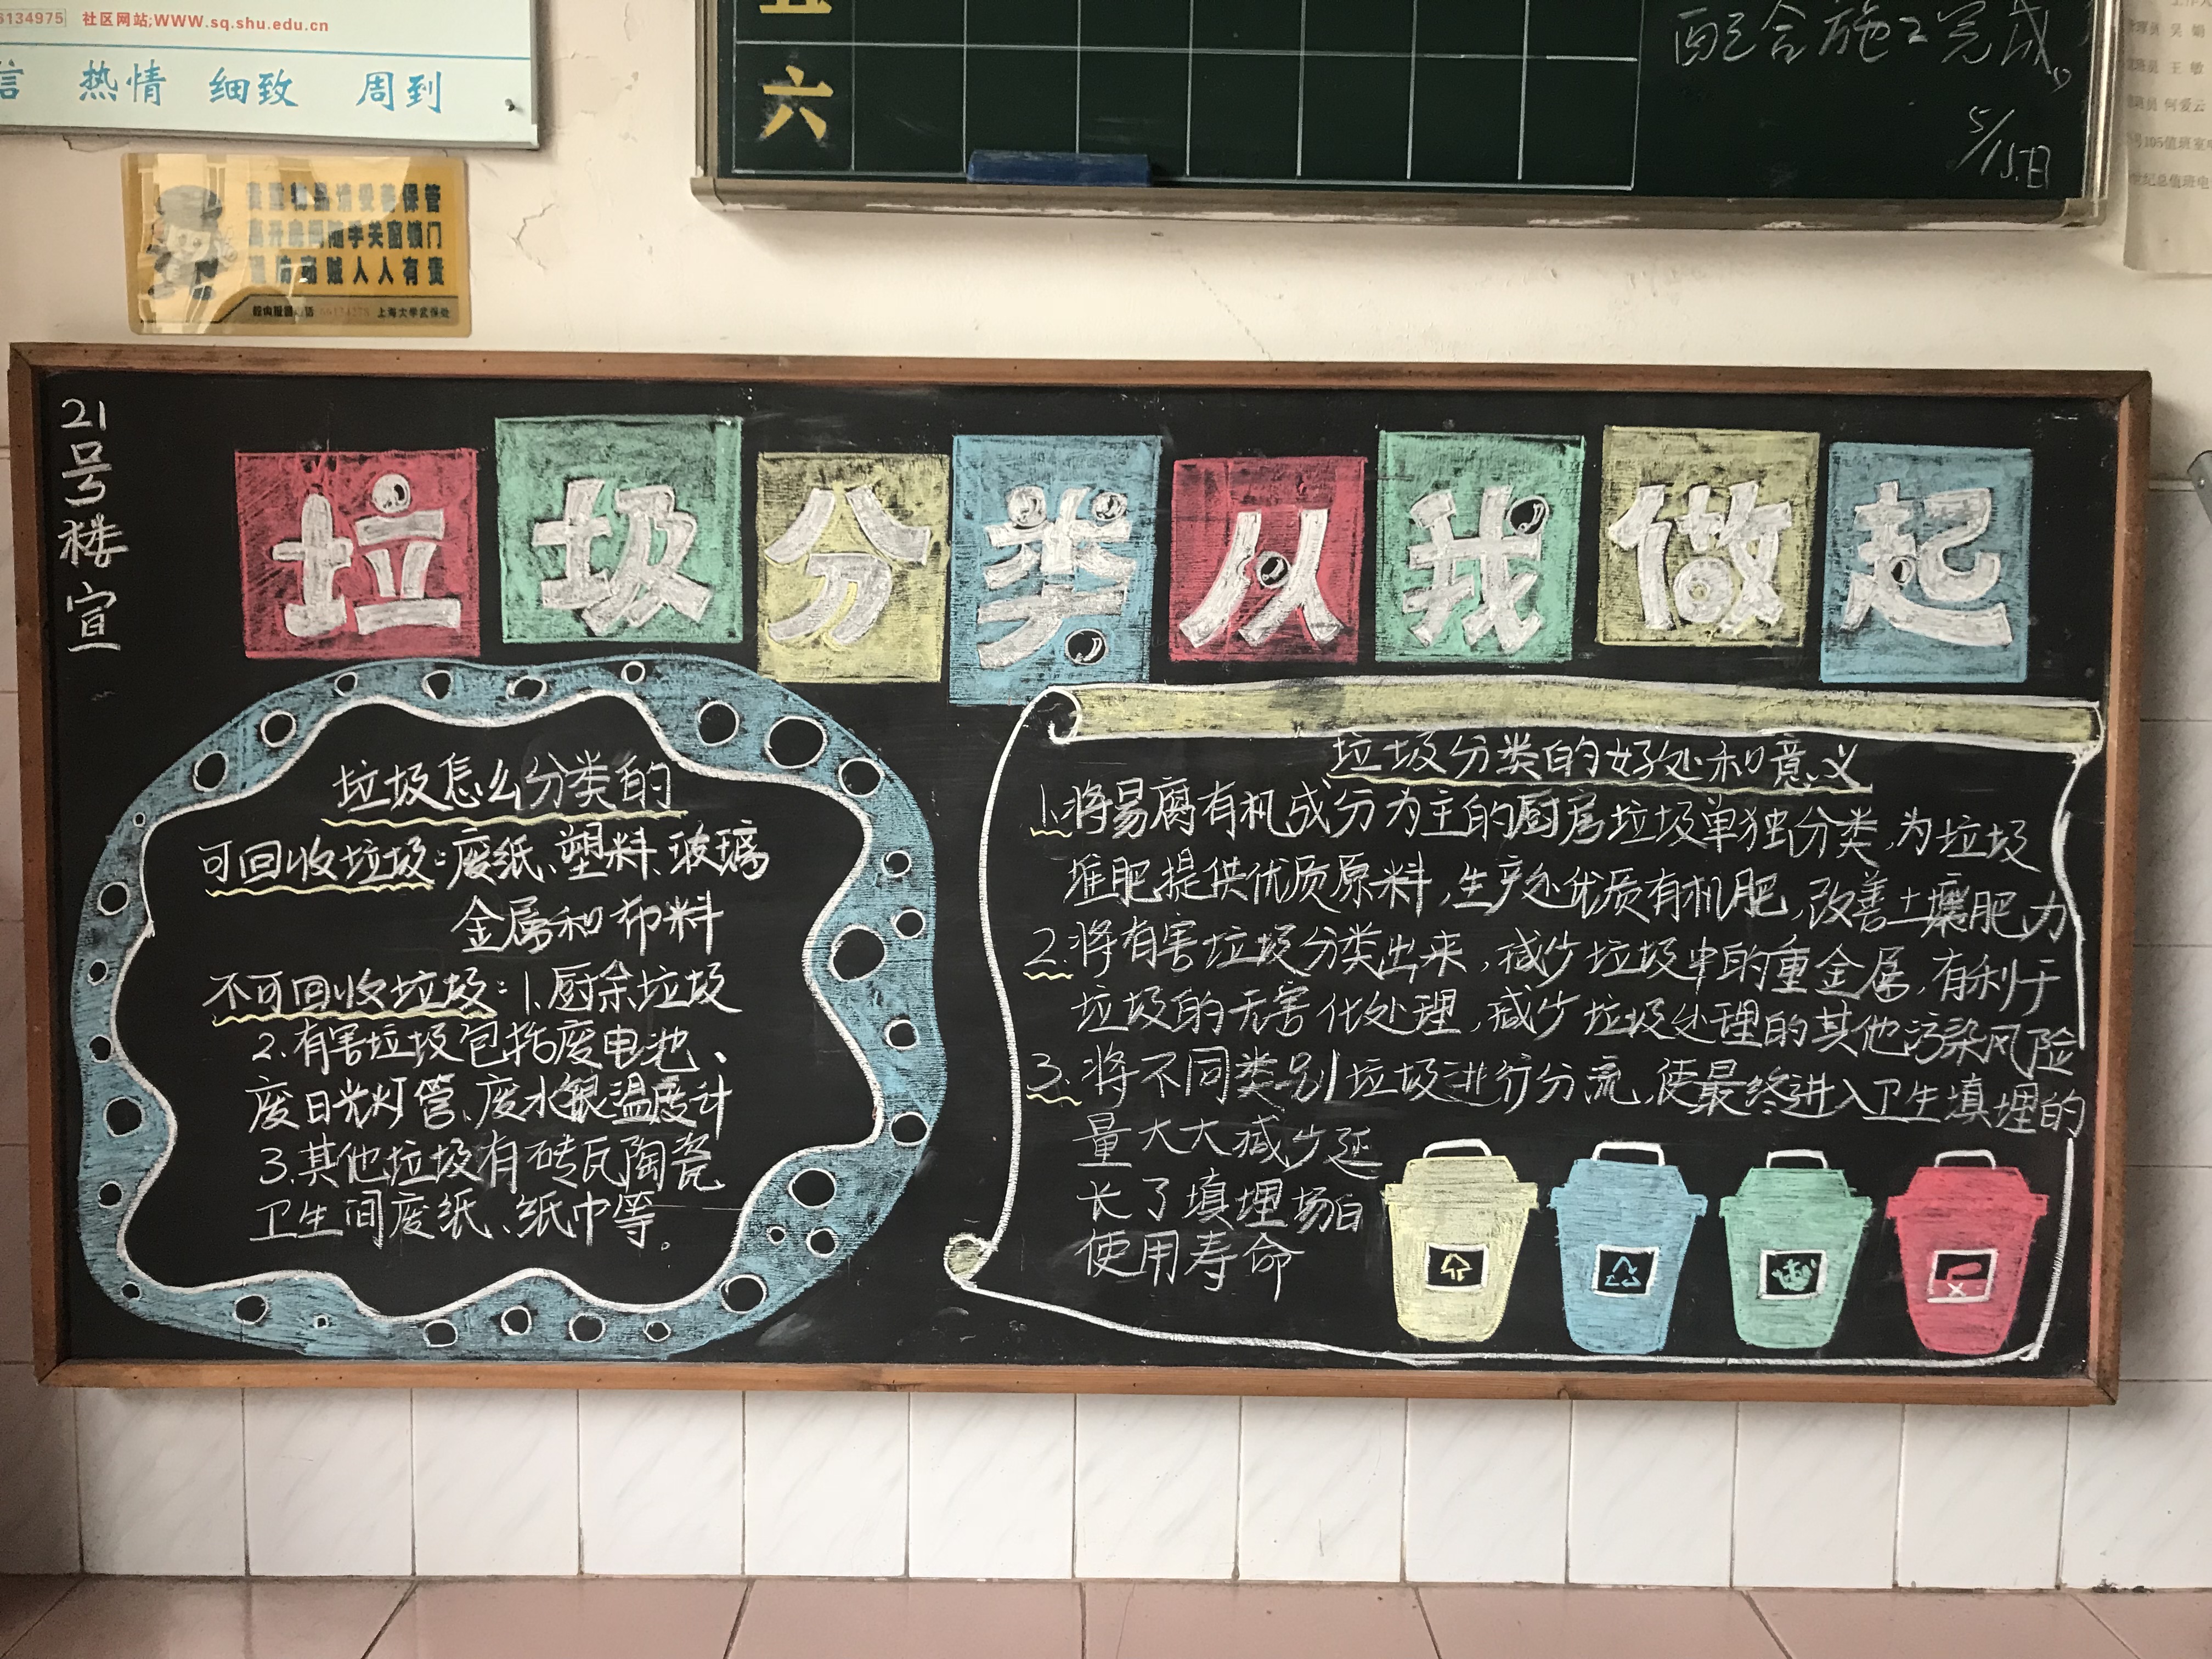 社区网站;WWW.sq.shu.edu.cn
热情 细致 周到
六
配合施工完成。
5/15日
保管
手关窗锁门
贼人人有责
上海大学武保处
21号楼宣
垃圾分类从我做起
垃圾怎么分类的
可回收垃圾:废纸、塑料、玻璃
金属和布料
不可回收垃圾:1.厨余垃圾
2.有害垃圾包括废电池、
废日光灯管、废水银温度计
3.其他垃圾有砖瓦陶瓷
卫生间废纸、纸巾等。
垃圾分类的好处和意义
1.将易腐有机成分为主的厨房垃圾单独分类,为垃圾
堆肥提供优质原料,生产处优质有机肥,改善土壤肥力
2.将有害垃圾分类出来,减少垃圾中的重金属,有利于
垃圾的无害化处理,减少垃圾处理的其他污染风险
3.将不同类别垃圾进行分流,使最终进入卫生填埋的
量大大减少延
长了填埋场白
使用寿命